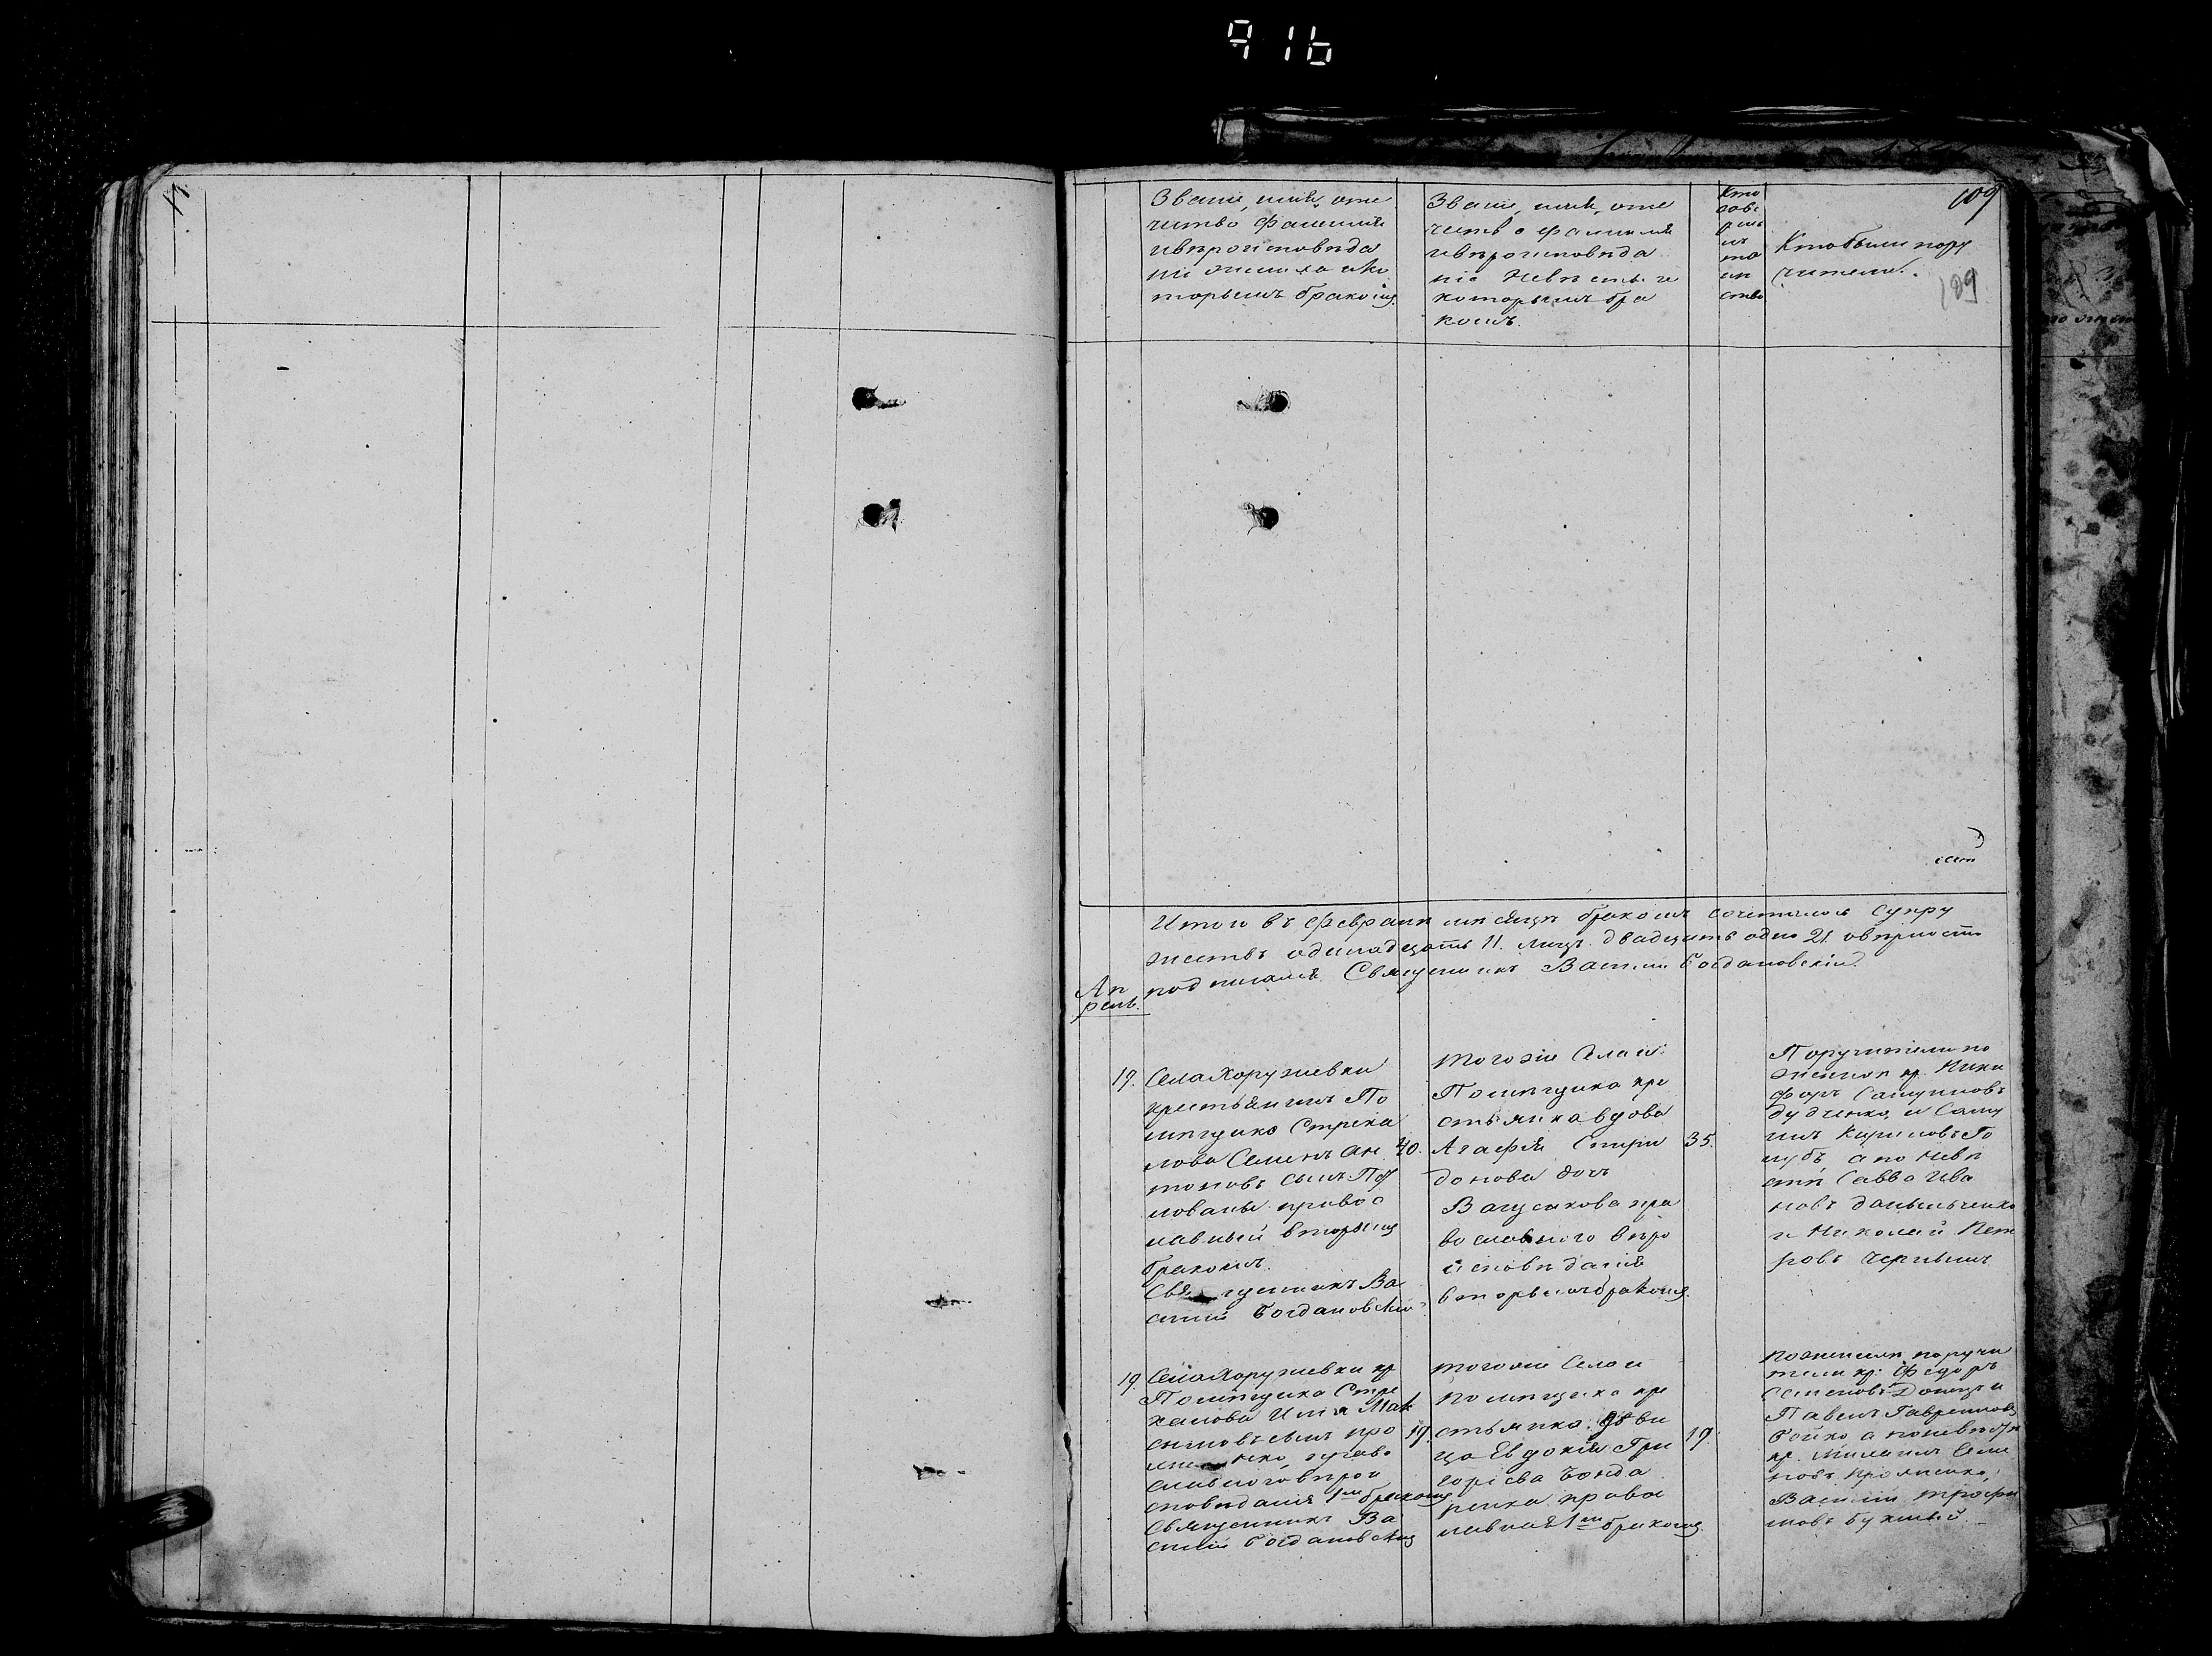 916
109
109
Званіе, имя, оте
чество фамилія
и вѣроисповѣда
ніе жениха и ко
торымъ бракомъ.
Званіе, имя, оте
чество фамилія
и вѣроисповѣда
ніе Невѣсты и
которымъ бра
комъ.
Кто
сове
ршв
лъ
та
ин
ство
Кто были пору
чители.
Итого въ Февралѣ мѣсяцѣ бракомъ сочеталось супру
жествъ одинадцать 11. лицъ двадцать одно 21
подписался Священникъ Василій Богдановскій.
Ап
рель.
19.
Села Хоружевки
крестьянинъ По
мѣщика Стрека
лова Семенъ Ан
тоновъ сынъ
православ
лавный вторымъ
бракомъ.
Священникъ Ва
силій Богдановскій
40.
Тогоже Села и
Помѣщика кре
стьянка вдова
Агафія Спири
донова дочь
пра
вославного вѣро
исповѣданія
вторымъ бракомъ.
35.
Поручители по
женихѣ кр. Ники
форъ Самуиловъ
Дудченко, и Саму
илъ Кириловъ Го
лубъ а по невѣ
стѣ Савва Ива
новъ Данильченко
и Николай Пет
ровъ
19.
Села Хоружевки кр
Помѣщика Стре
калова Илія Мак
симовъ сынъ
православ
славного вѣрои
сповѣданія 1мъ бракомъ
Священникъ Ва
силій Богдановскій
19.
Тогоже Села и
помѣщика кре
стьянка дѣви
ца Евдокія Гри
горіева Бонда
ренка право
славная 1мъ бракомъ.
19.
По женихѣ поручи
тели кр. Федоръ
Семеновъ Донецъ и
Павелъ Гавриловъ
Бойко а по невѣстѣ
кр. Михаилъ Семе
новъ
Василій Трофи
мовъ